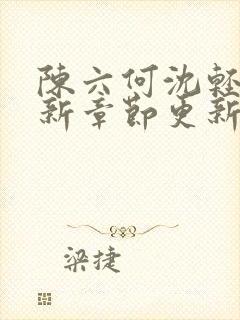 陳六何沈輕
新章節更新
梁捷